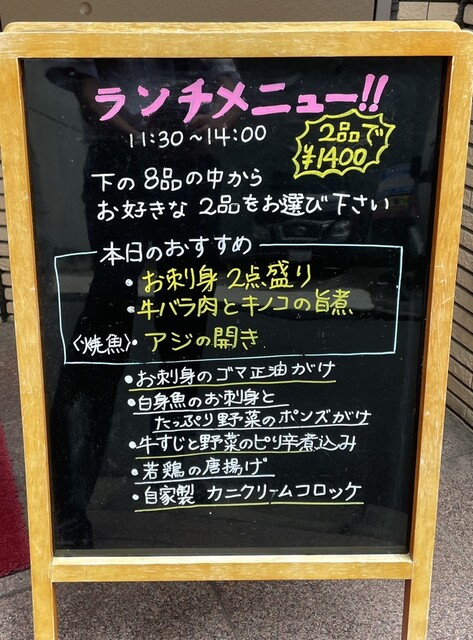 ランチメニュー!!
11:30～14:00
2品で
¥1400
下の8品の中から
お好きな2品をお選び下さい
本日のおすすめ
・お刺身2点盛り
・牛バラ肉とキノコの旨煮
〈焼魚〉・アジの開き
・お刺身のゴマ正油がけ
・白身魚のお刺身と
たっぷり野菜のポンズがけ
・牛すじと野菜のピリ辛煮込み
・若鶏の唐揚げ
・自家製 カニクリームコロッケ